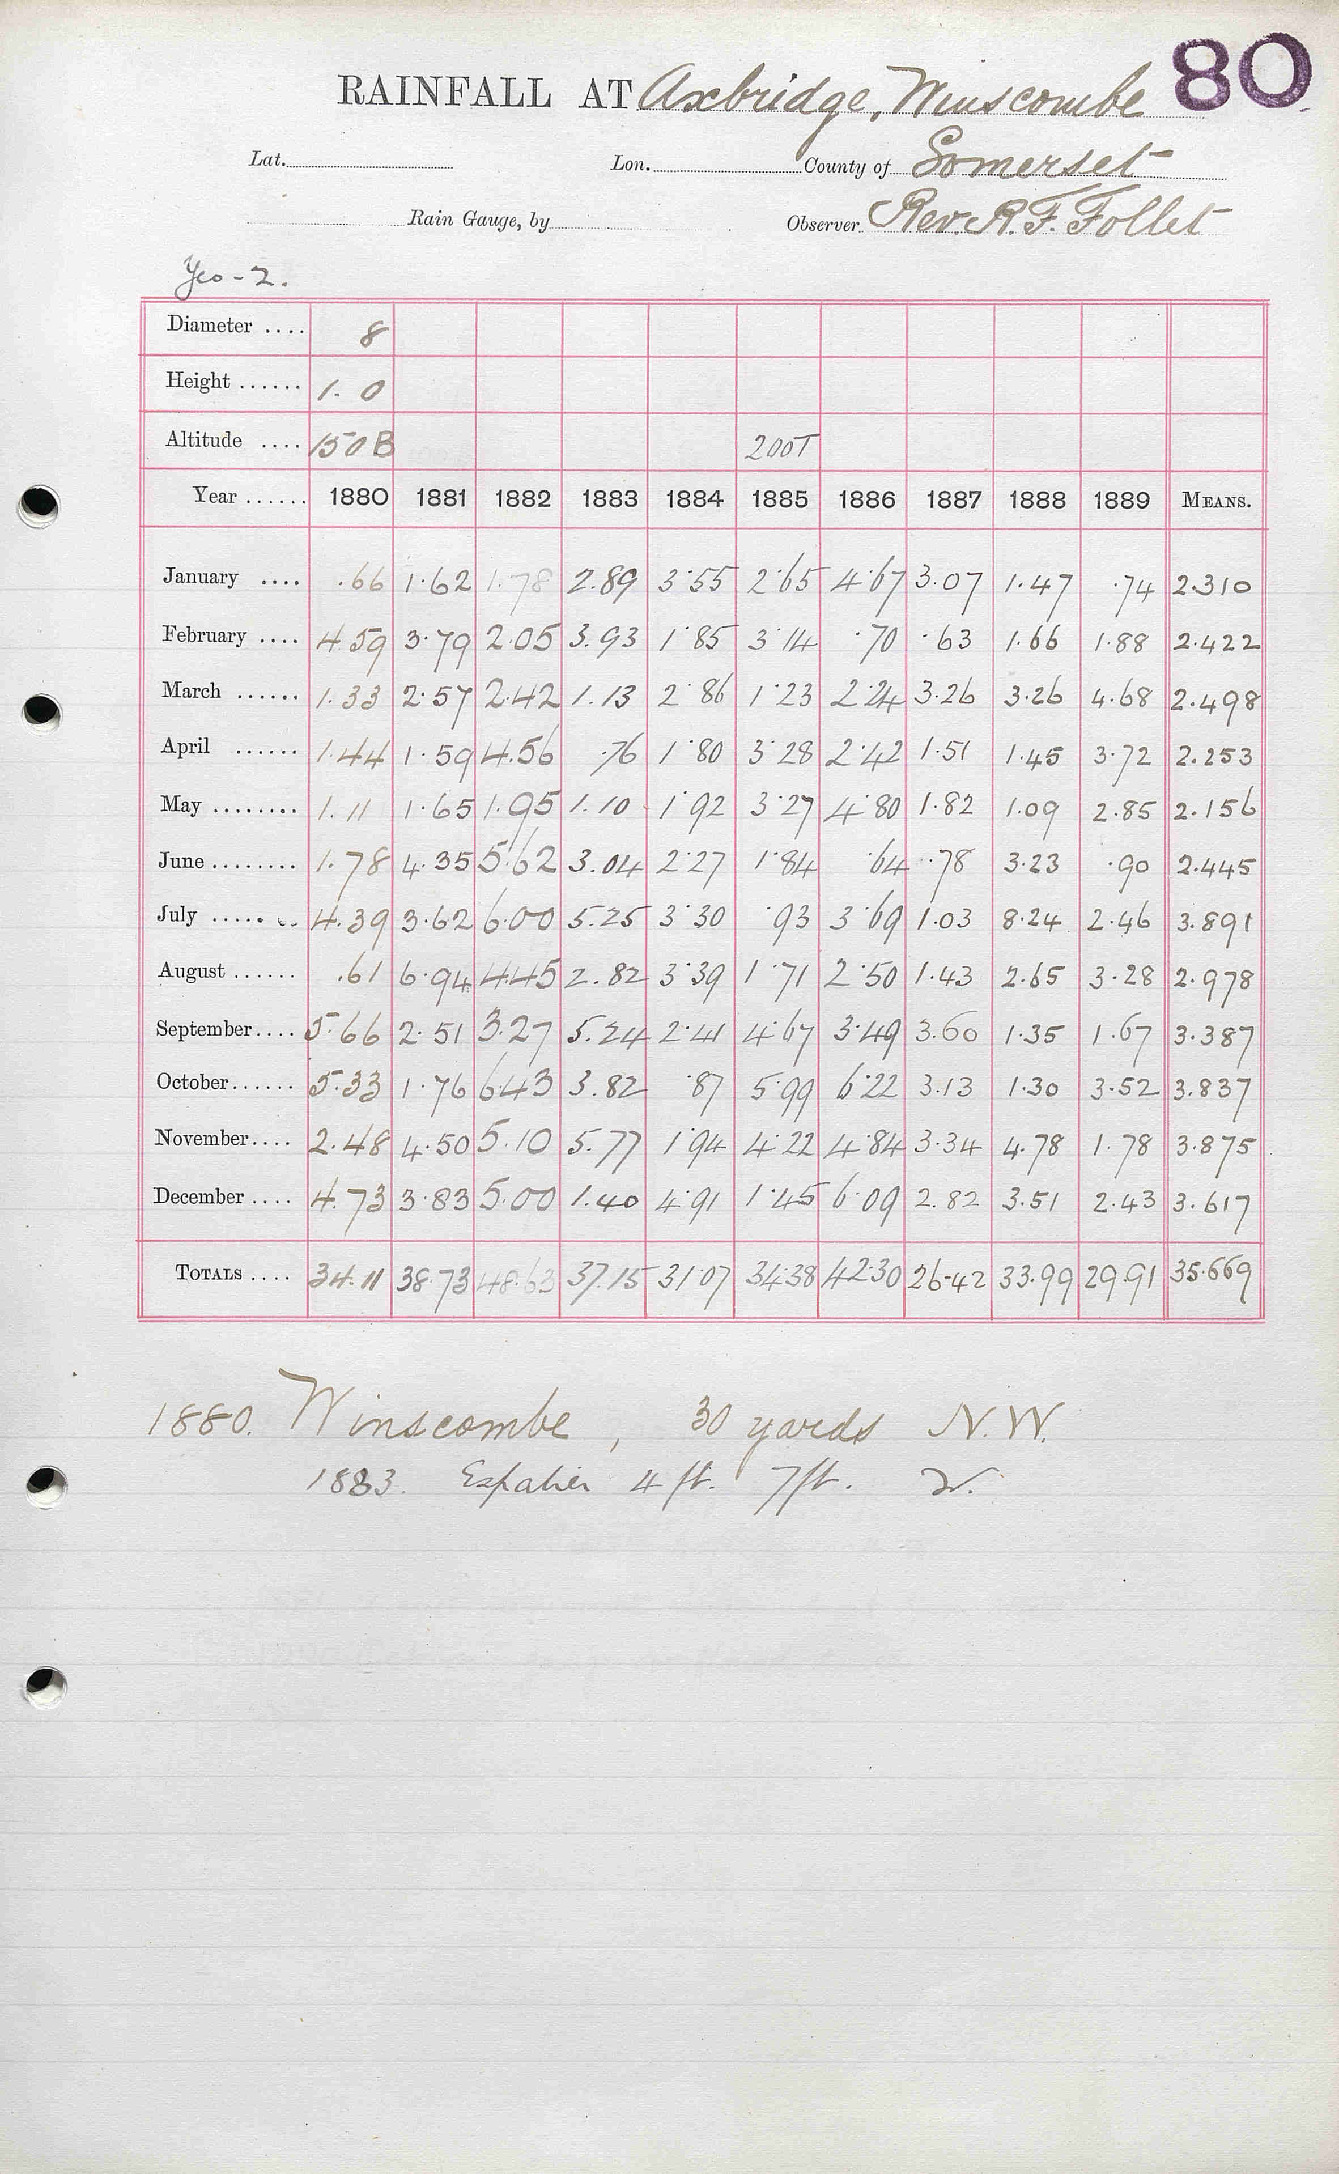 80
RAINFALL AT Axbridge, Winscombe
Lat. Lon. County of Somerset
Rain Gauge, by Observer Rev. R. F. Follet
Yeo - 2.
Diameter .... 8
Height ...... 1. 0
Altitude .... 150 B 200T
Year ...... 1880 1881 1882 1883 1884 1885 1886 1887 1888 1889 MEANS.
January .... .66 1.62 1.78 2.89 3.55 2.65 4.67 3.07 1.47 .74 2.310
February .... 4.59 3.79 2.05 3.93 1.85 3.14 .70 .63 1.66 1.88 2.422
March ...... 1.33 2.57 2.42 1.13 2.86 1.23 2.24 3.26 3.26 4.68 2.498
April ...... 1.44 1.59 4.56 .76 1.80 3.28 2.42 1.51 1.45 3.72 2.253
May ........ 1.11 1.65 1.95 1.10 1.92 3.27 4.80 1.82 1.09 2.85 2.156
June ........ 1.78 4.35 5.62 3.04 2.27 1.84 .64 .78 3.23 .90 2.445
July ........ 4.39 3.62 6.00 5.25 3.30 .93 3.69 1.03 8.24 2.46 3.891
August ...... .61 6.94 4.45 2.82 3.39 1.71 2.50 1.43 2.65 3.28 2.978
September.... 5.66 2.51 3.27 5.24 2.41 4.67 3.49 3.60 1.35 1.67 3.387
October...... 5.33 1.76 6.43 3.82 .87 5.99 6.22 3.13 1.30 3.52 3.837
November.... 2.48 4.50 5.10 5.77 1.94 4.22 4.84 3.34 4.78 1.78 3.875
December .... 4.73 3.83 5.00 1.40 4.91 1.45 6.09 2.82 3.51 2.43 3.617
TOTALS .... 34.11 38.73 48.63 37.15 31.07 34.38 42.30 26.42 33.99 29.91 35.669
1880. Winscombe, 30 yards N.W.
1883. Espalier 4 ft. 7ft. W.